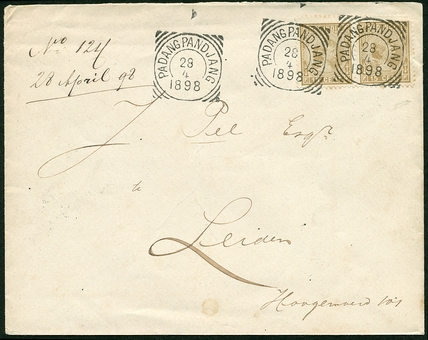 No. 124
28 April 98
PADANGPANDJANG
28
4
1898
PADANGPANDJANG
28
4
1898
PADANGPANDJANG
28
4
1898
J. Pel Esqr.
te
Leiden